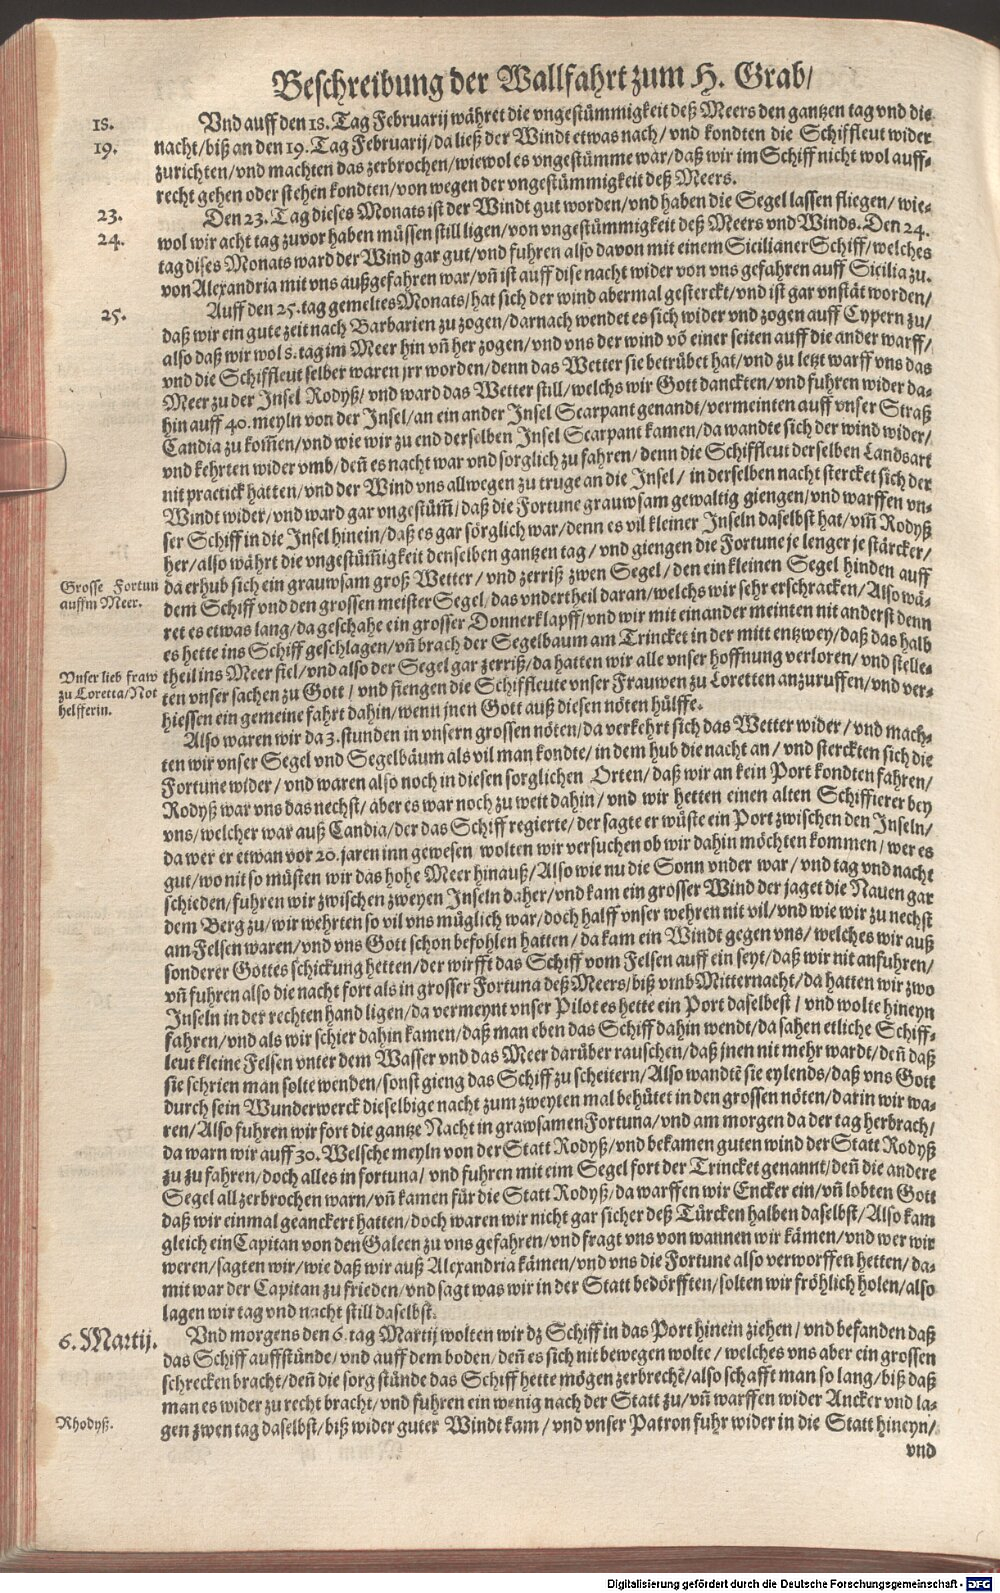 Beschreibung der Wallfahrt zum H. Grab/
18.
Vnd auff den 18. Tag Februarij währet die vngestümmigkeit deß Meers den gantzen tag vnd die
19.
nacht/biß an den 19. Tag Februarij/da ließ der Windt etwas nach/vnd kondten die Schiffleut wider
zurichten/vnd machten das zerbrochen/wiewol es vngestümme war/daß wir im Schiff nicht wol auff-
recht gehen oder stehen kondten/von wegen der vngestümmigkeit deß Meers.
23.
Den 23. Tag dieses Monats ist der Windt gut worden/vnd haben die Segel lassen fliegen/wie-
24.
wol wir acht tag zuvor haben müssen still ligen/von vngestümmigkeit deß Meers vnd Winds. Den 24.
tag dises Monats ward der Wind gar gut/vnd fuhren also davon mit einem Sicilianer Schiff/welches
von Alexandria mit vns außgefahren war/vñ ist auff dise nacht wider von vns gefahren auff Sicilia zu.
25.
Auff den 25. tag gemeltes Monats/hat sich der wind abermal gesterckt/vnd ist gar vnstät worden/
daß wir ein gute zeit nach Barbarien zu zogen/darnach wendet es sich wider vnd zogen auff Cypern zu/
also daß wir wol 8. tag im Meer hin vñ her zogen/vnd vns der wind võ einer seiten auff die ander warff/
vnd die Schiffleut selber waren jrr worden/denn das Wetter sie betrübet hat/vnd zu letzt warff vns das
Meer zu der Insel Rodyß/vnd ward das Wetter still/welchs wir Gott danckten/vnd fuhren wider da-
hin auff 40. meyln von der Insel/an ein ander Insel Scarpant genandt/vermeinten auff vnser Straß
Candia zu kom̃en/vnd wie wir zu end derselben Insel Scarpant kamen/da wandte sich der wind wider/
vnd kehrten wider vmb/deñ es nacht war vnd sorglich zu fahren/denn die Schiffleut derselben Landsart
nit practick hatten/vnd der Wind vns allwegen zu truge an die Insel/in derselben nacht stercket sich der
Windt wider/vnd ward gar vngestüm̃/daß die Fortune grauwsam gewaltig giengen/vnd warffen vn-
ser Schiff in die Insel hinein/daß es gar sörglich war/denn es vil kleiner Inseln daselbst hat/vm̃ Rodyß
her/also währt die vngestüm̃igkeit denselben gantzen tag/vnd giengen die Fortune je lenger je stärcker/
Grosse Fortun
auffm Meer.
da erhub sich ein grauwsam groß Wetter/vnd zerriß zwen Segel/den ein kleinen Segel hinden auff
dem Schiff vnd den grossen meister Segel/das vndertheil daran/welchs wir sehr erschracken/Also wä-
ret es etwas lang/da geschahe ein grosser Donnerklapff/vnd wir mit einander meinten nit anderst denn
es hette ins Schiff geschlagen/vñ brach der Segelbaum am Trincket in der mitt entzwey/daß das halb
Vnser lieb fraw
zu Loretta/Not
helfferin.
theil ins Meer fiel/vnd also der Segel gar zerriß/da hatten wir alle vnser hoffnung verloren/vnd stelle-
ten vnser sachen zu Gott/vnd fiengen die Schiffleute vnser Frauwen zu Loretten anzuruffen/vnd ver-
hiessen ein gemeine fahrt dahin/wenn jnen Gott auß diesen nöten hülffe.
Also waren wir da 3. stunden in vnsern grossen nöten/da verkehrt sich das Wetter wider/vnd mach-
ten wir vnser Segel vnd Segelbäum als vil man kondte/in dem hub die nacht an/vnd sterckten sich die
Fortune wider/vnd waren also noch in diesen sorglichen Orten/daß wir an kein Port kondten fahren/
Rodyß war vns das nechst/aber es war noch zu weit dahin/vnd wir hetten einen alten Schiffierer bey
vns/welcher war auß Candia/der das Schiff regierte/der sagte er wüste ein Port zwischen den Inseln/
da wer er etwan vor 20. jaren inn gewesen wolten wir versuchen ob wir dahin möchten kommen/wer es
gut/wo nit so müsten wir das hohe Meer hinauß/Also wie nu die Sonn vnder war/vnd tag vnd nacht
schieden/fuhren wir zwischen zweyen Inseln daher/vnd kam ein grosser Wind der jaget die Nauen gar
dem Berg zu/wir wehrten so vil vns müglich war/doch halff vnser wehren nit vil/vnd wie wir zu nechst
am Felsen waren/vnd vns Gott schon befohlen hatten/da kam ein Windt gegen vns/welches wir auß
sonderer Gottes schickung hetten/der wirfft das Schiff vom Felsen auff ein seyt/daß wir nit anfuhren/
vñ fuhren also die nacht fort als in grosser Fortuna deß Meers/biß vmb Mitternacht/da hatten wir zwo
Inseln in der rechten hand ligen/da vermeynt vnser Pilot es hette ein Port daselbest/vnd wolte hineyn
fahren/vnd als wir schier dahin kamen/daß man eben das Schiff dahin wendt/da sahen etliche Schiff-
leut kleine Felsen vnter dem Wasser vnd das Meer darüber rauschen/daß jnen nit mehr wardt/deñ daß
sie schrien man solte wenden/sonst gieng das Schiff zu scheitern/Also wandtẽ sie eylends/daß vns Gott
durch sein Wunderwerck dieselbige nacht zum zweyten mal behütet in den grossen nöten/darin wir wa-
ren/Also fuhren wir fort die gantze Nacht in grawsamen Fortuna/vnd am morgen da der tag herbrach/
da warn wir auff 30. Welsche meyln von der Statt Rodyß/vnd bekamen guten wind der Statt Rodyß
zu zu fahren/doch alles in fortuna/vnd fuhren mit eim Segel fort der Trincket genannt/deñ die andere
Segel all zerbrochen warn/vñ kamen für die Statt Rodyß/da warffen wir Encker ein/vñ lobten Gott
daß wir einmal geanckert hatten/doch waren wir nicht gar sicher deß Türcken halben daselbst/Also kam
gleich ein Capitan von den Galeen zu vns gefahren/vnd fragt vns von wannen wir kämen/vnd wer wir
weren/sagten wir/wie daß wir auß Alexandria kämen/vnd vns die Fortune also verworffen hetten/da-
mit war der Capitan zu frieden/vnd sagt was wir in der Statt bedörfften/solten wir fröhlich holen/also
lagen wir tag vnd nacht still daselbst.
6. Martij.
Vnd morgens den 6. tag Martij wolten wir dz Schiff in das Port hinein ziehen/vnd befanden daß
das Schiff auffstünde/vnd auff dem boden/deñ es sich nit bewegen wolte/welches vns aber ein grossen
schrecken bracht/deñ die sorg stünde das Schiff hette mögen zerbrechẽ/also schafft man so lang/biß daß
man es wider zu recht bracht/vnd fuhren ein wenig nach der Statt zu/vñ warffen wider Ancker vnd la-
Rhodyß.
gen zwen tag daselbst/biß wider guter Windt kam/vnd vnser Patron fuhr wider in die Statt hineyn/
vnd
Digitalisierung gefördert durch die Deutsche Forschungsgemeinschaft - DFG